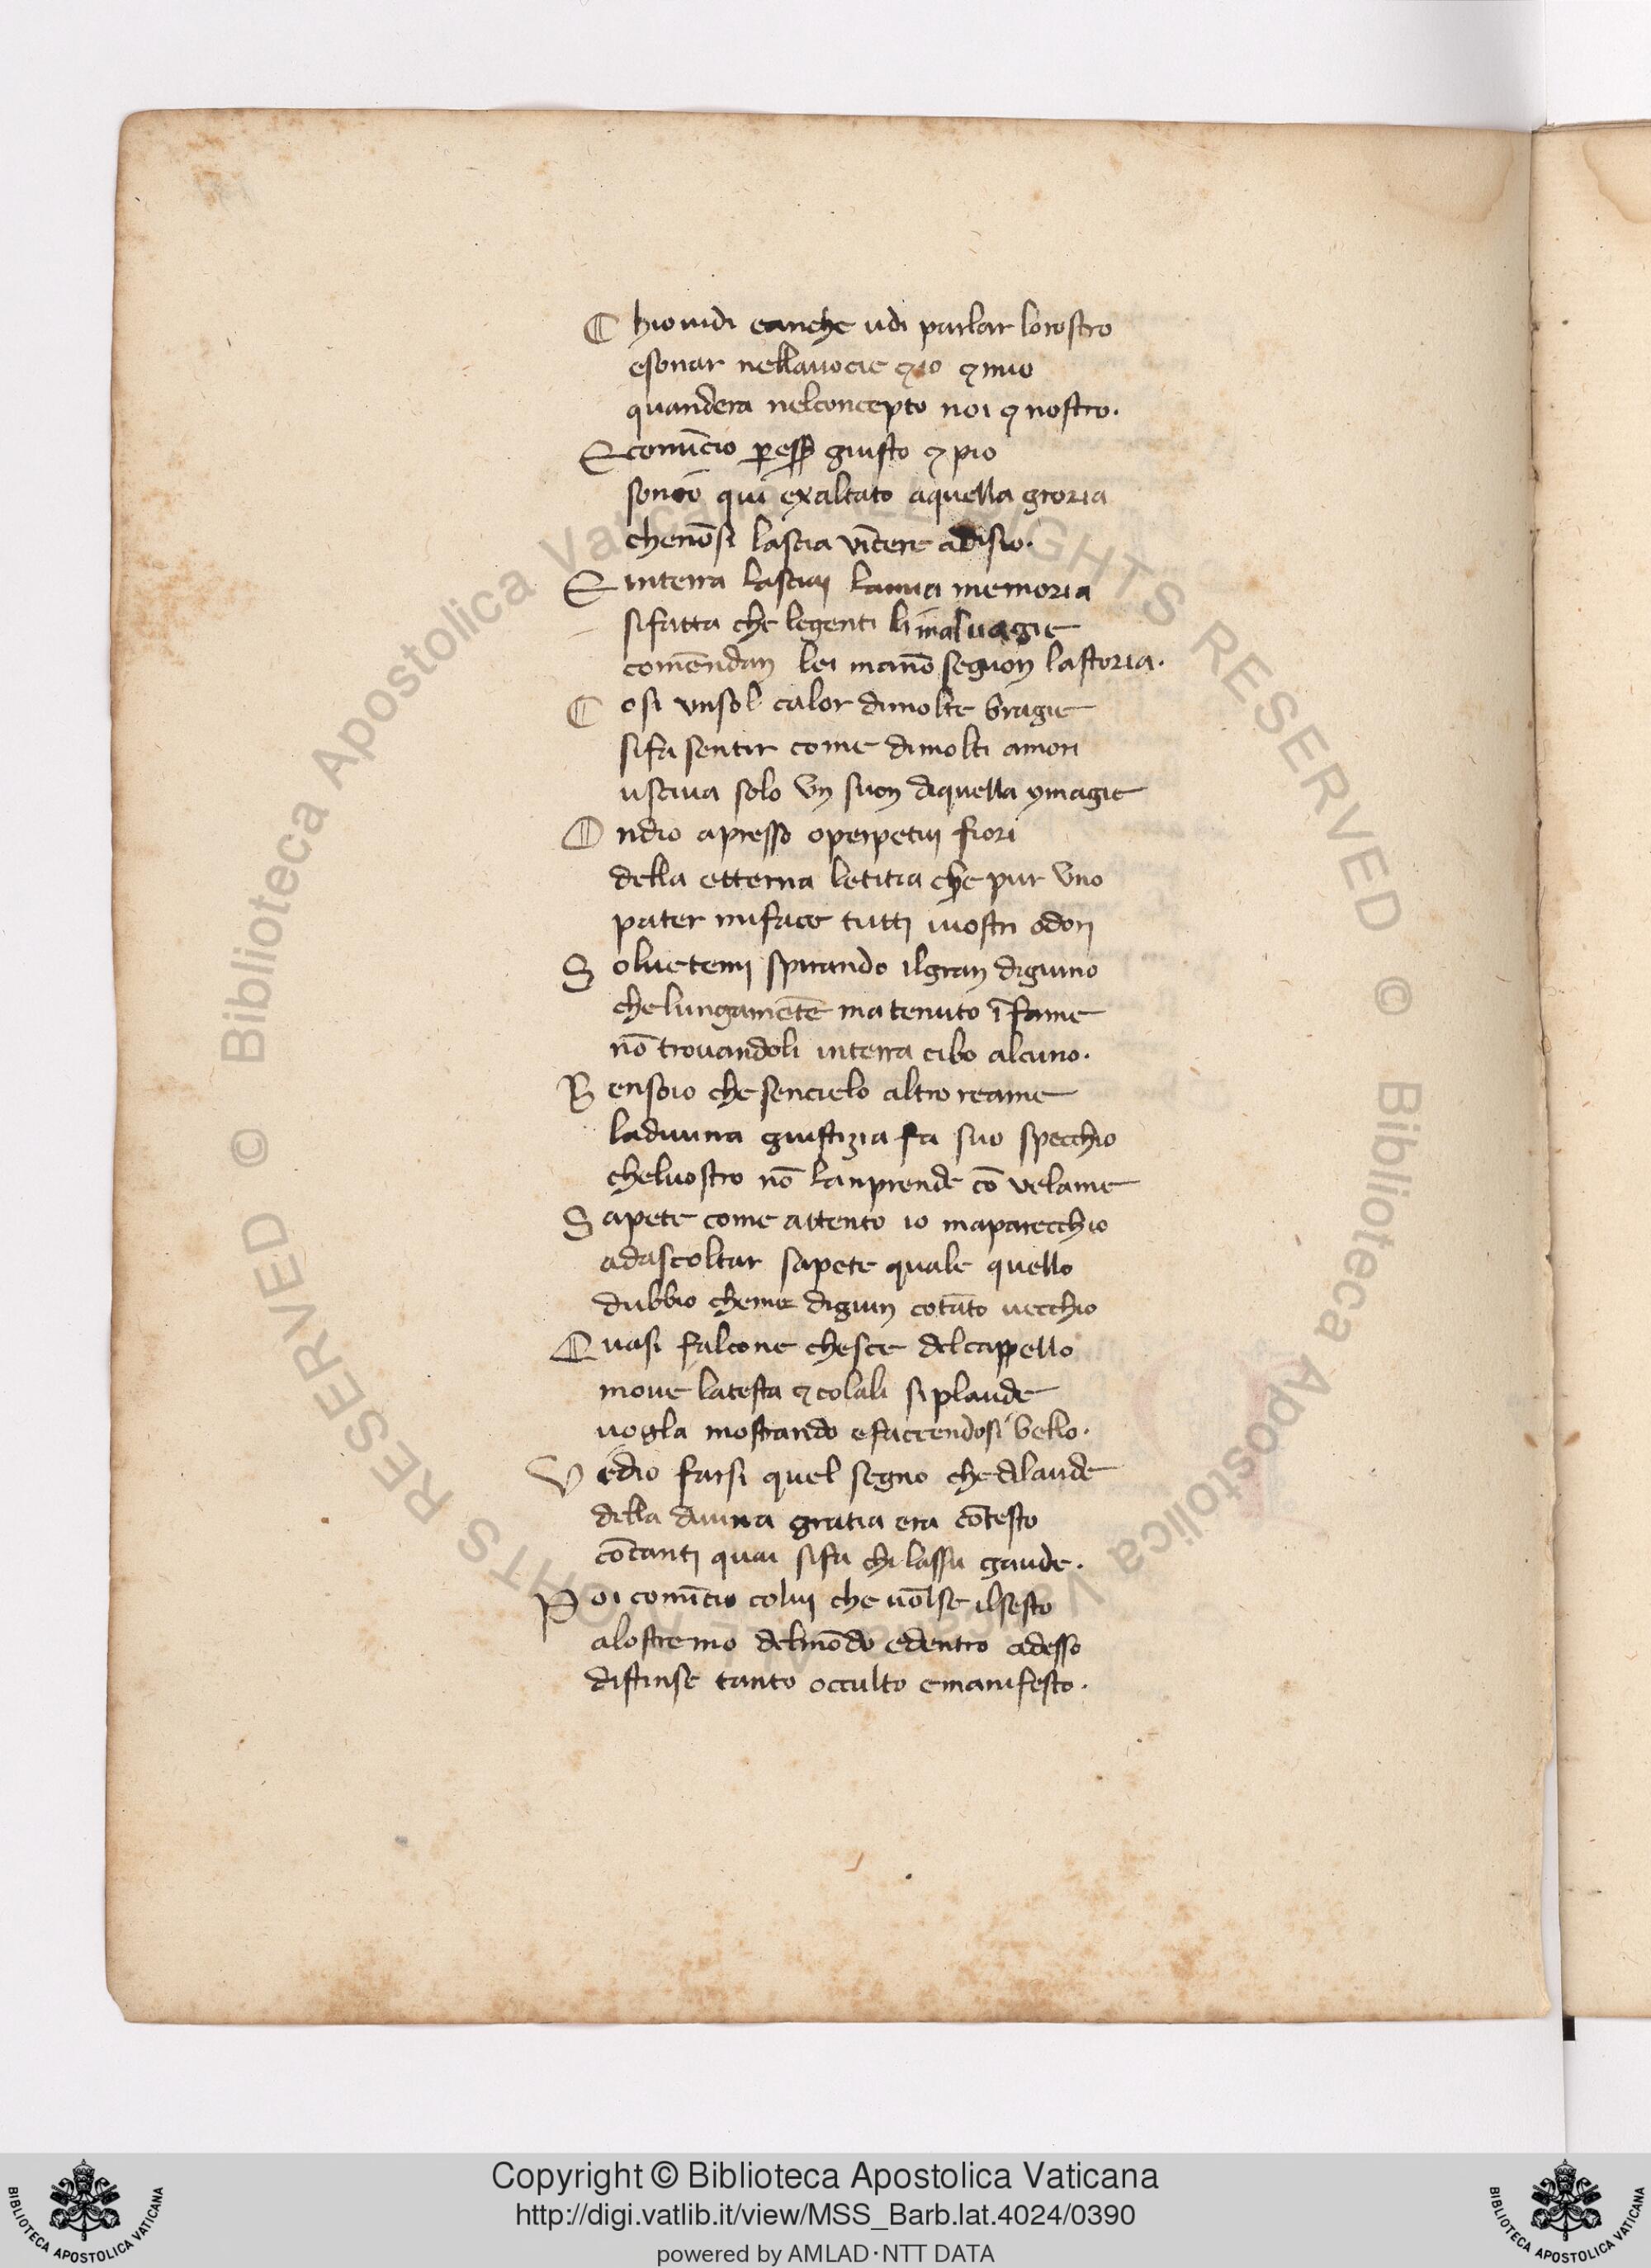 C hiouidi eanche udi parlar lorostro
esonar nellauocie ⁊ io ⁊ mio
quandera nelconcepto noi ⁊ nostro.
E comīcio ꝑeſſ giusto ⁊ pio
sonio qui exaltato aquella groria
chenōsi lascia vīcere adisio.
E interra lasciaj lamia memoria
sifatta che legenti li maluagie
comēndan lei manō seguon lastoria.
C osi vnsol calor dimolte bragie
sifa sentir come dimolti amori
usciua solo vn suon diquella ymagie
O ndio apresso operpetuj fiori
della etterna letitia che pur vno
pater mifacie tutti iuostri odori
S oluetemi spirando ilgran digiuno
chelungamēte ma tenuto ī fame
nō trouandoli interra cibo alcuno.
B ensoio che sencielo altro reame
ladiuina giustizia fa suo specchio
cheluostro nō lanprende cō velame
S apete come attento io maparecchio
adascoltar sapete quale quello
dubbio cheme digiun cotāto uecchio
Q uasi falcone chesce delcappello
moue latesta ⁊ colali si plaude
uogla mostrando efaccendosi bello.
V edio farsi quel segno che dilaude
della diuina gratia era cōtesto
cōcanti quai sifa chi lassu gaude.
P oi comīcio coluj che uolse ilsesto
alostremo delmōdo edentro adesso
distinse tanto occulto emanifesto.
© Biblioteca Apostolica Vaticana ALL RIGHTS RESERVED © Biblioteca Apostolica Vaticana ALL RIGHTS RESERVED
Copyright © Biblioteca Apostolica Vaticana
http://digi.vatlib.it/view/MSS_Barb.lat.4024/0390
powered by AMLAD·NTT DATA
BIBLIOTECA APOSTOLICA VATICANA
BIBLIOTECA APOSTOLICA VATICANA